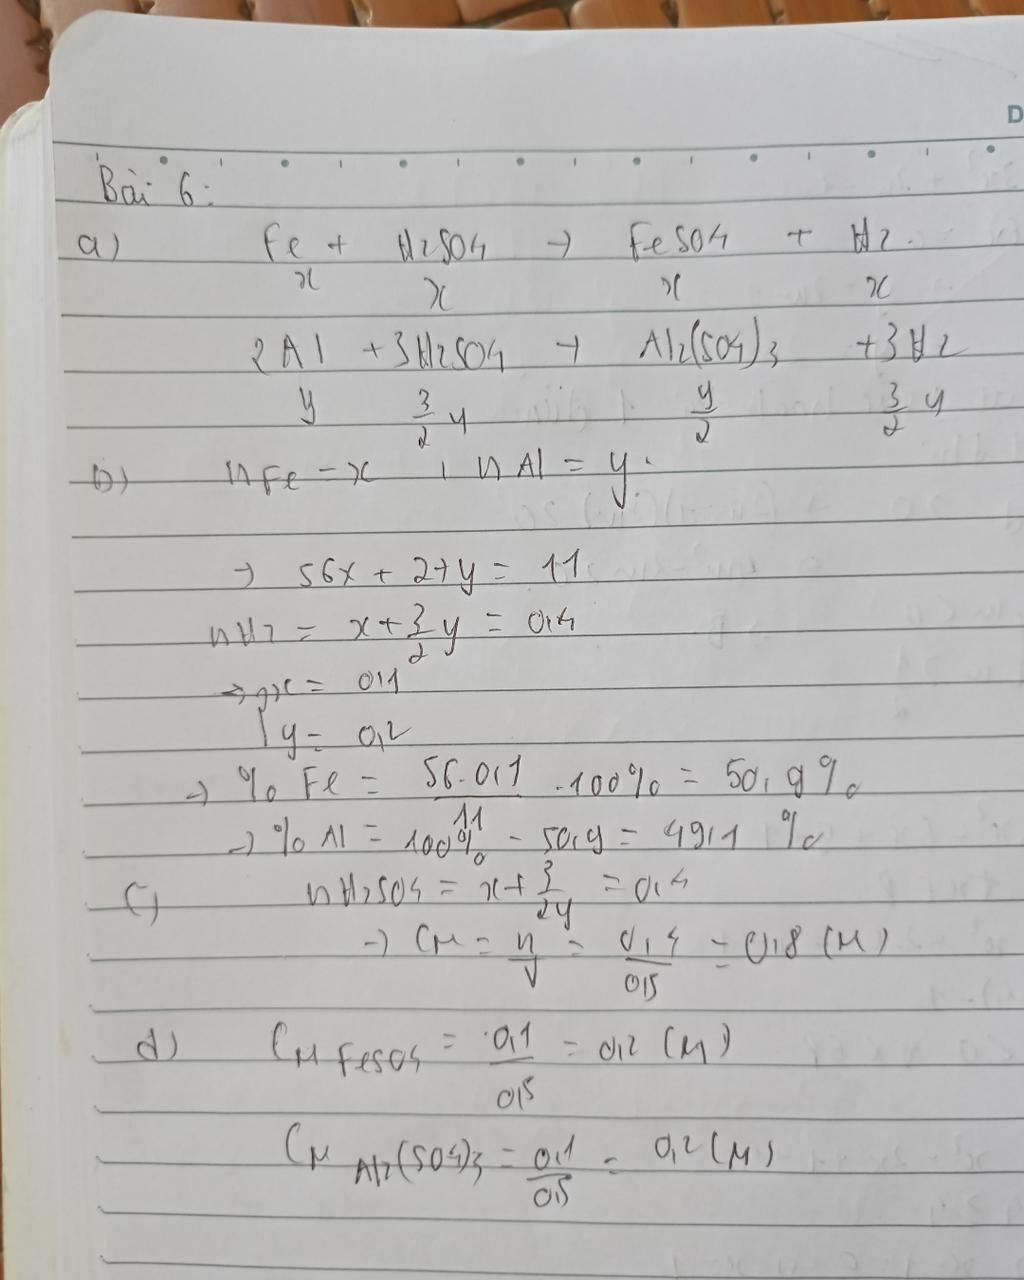 D
Bài 6:
a) Fe + H2SO4 → FeSO4 + H2.
x x x x
2Al + 3H2SO4 → Al2(SO4)3 + 3H2
y 3/2 y y/2 3/2 y
b) nFe = x , nAl = y.
→ 56x + 27y = 11
nH2 = x + 3/2 y = 0,4
→ { x = 0,1
y = 0,2
→ % Fe = 56.0,1/11 .100% = 50,9%
→ % Al = 100% - 50,9 = 49,1 %
c) nH2SO4 = x + 3/2y = 0,4
→ CM = n/V = 0,4/0,5 = 0,8 (M)
d) CM FeSO4 = 0,1/0,5 = 0,2 (M)
CM Al2(SO4)3 = 0,1/0,5 = 0,2 (M)